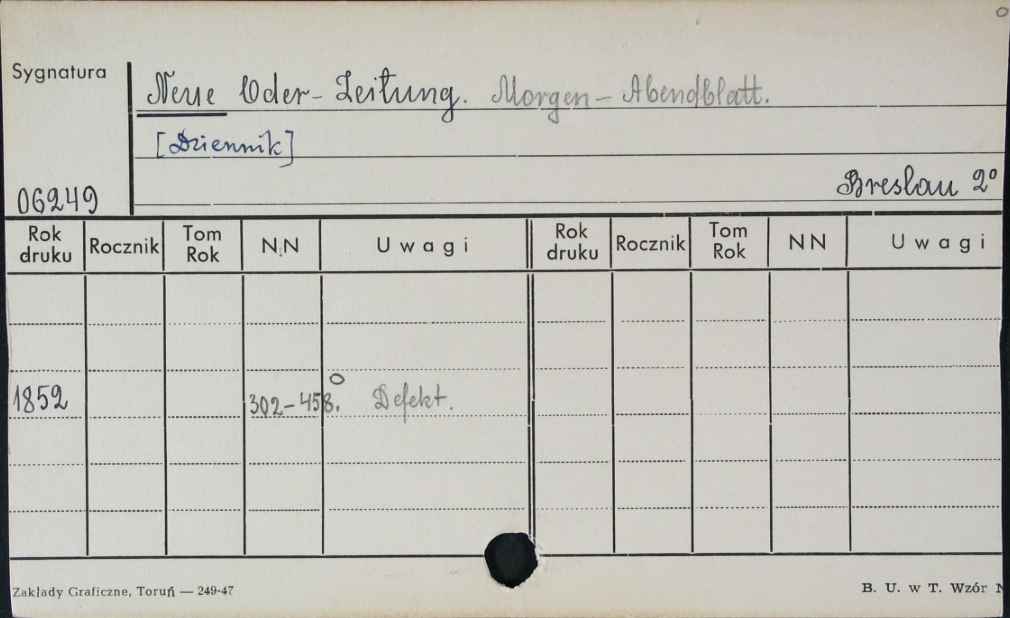 Sygnatura
Neue Oder-Zeitung. Morgen-Abendblatt.
[Dziennik]
06249
Breslau 2º
Rok druku Rocznik Tom Rok N.N Uwagi Rok druku Rocznik Tom Rok NN Uwagi
1852 302-458. Defekt.
Zakłady Graficzne, Toruń — 249-47
B. U. w T. Wzór